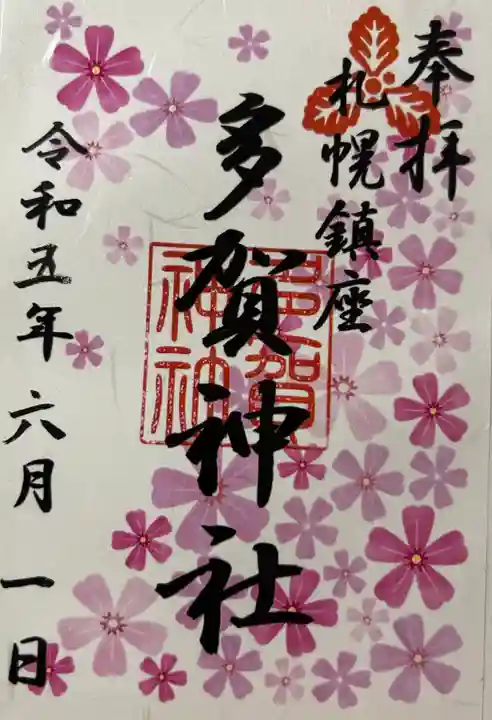 奉拝
札幌鎮座
多賀神社
多賀
神社
令和五年六月一日